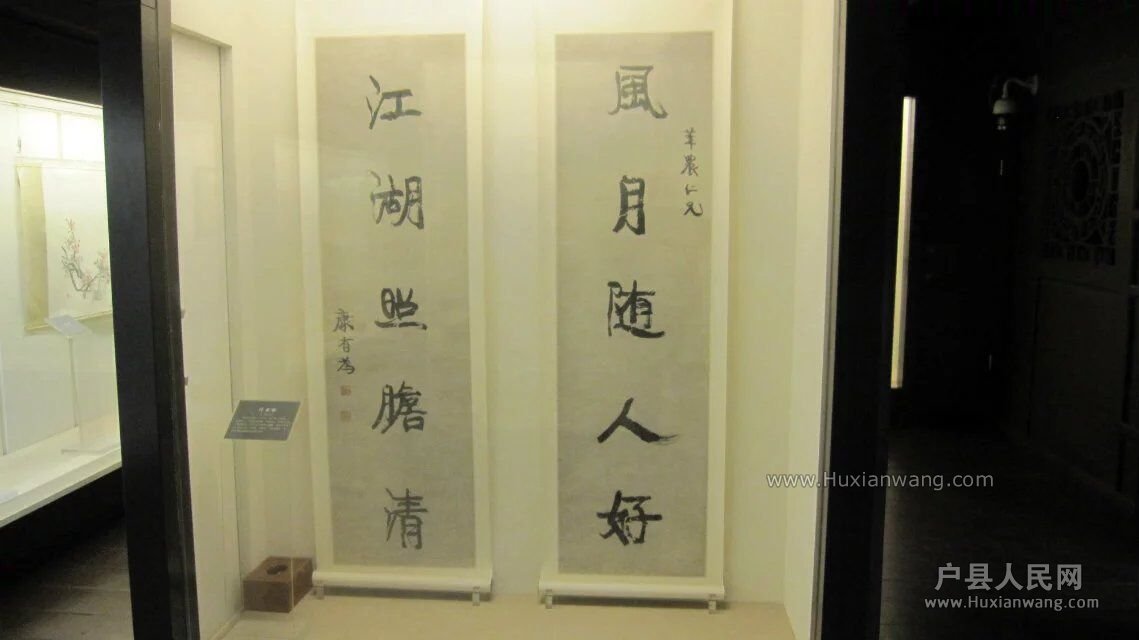 風月随人好
華農仁兄
江湖照膽清
康有為
www.Huxianwang.com
户县人民网
www.Huxianwang.com